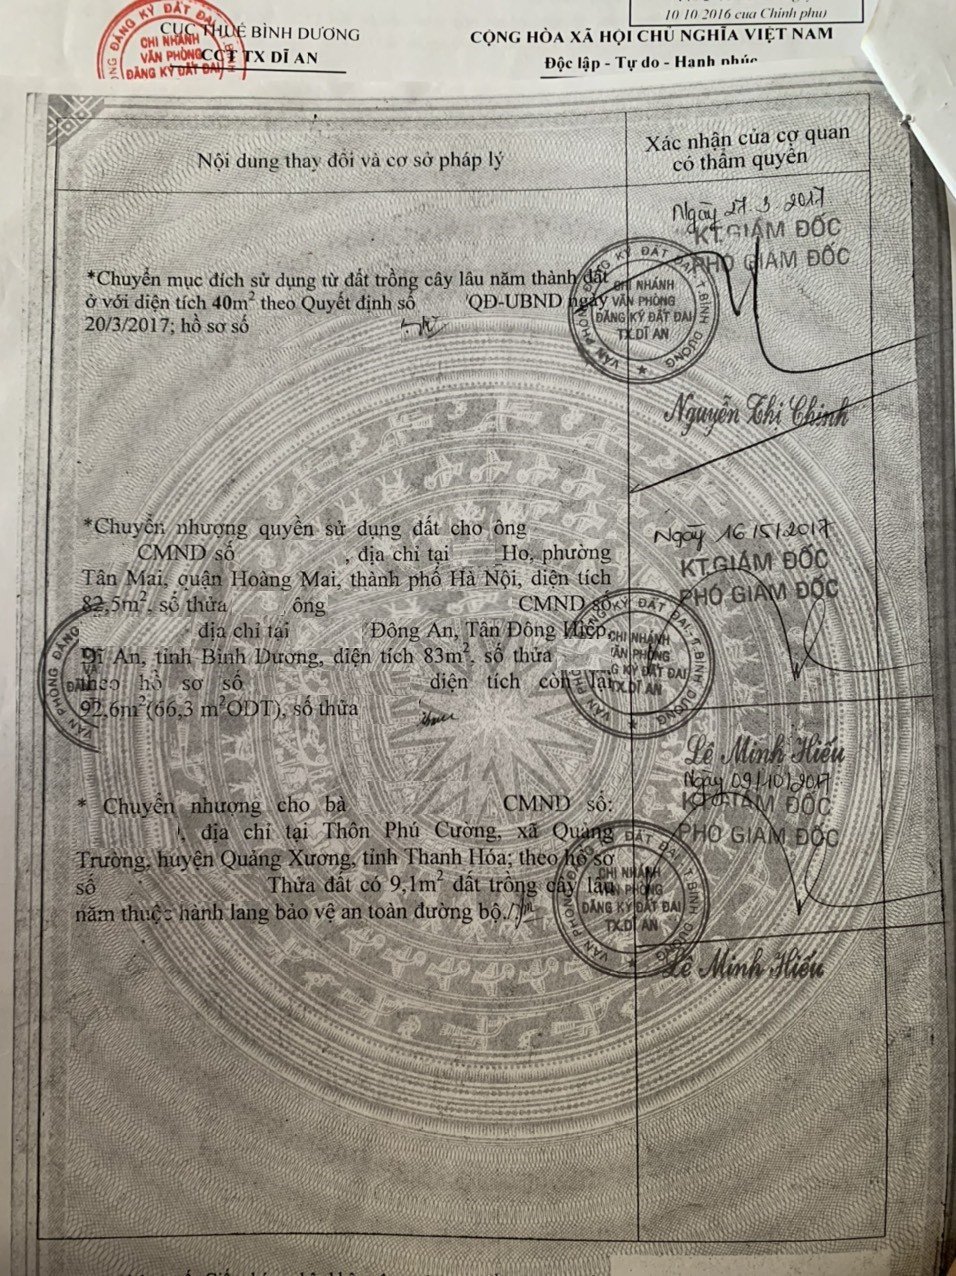 10.10.2016 của Chính phủ)
CỤC THUẾ BÌNH DƯƠNG
CCT TX DĨ AN
CỘNG HÒA XÃ HỘI CHỦ NGHĨA VIỆT NAM
Độc lập - Tự do - Hạnh phúc
ĐĂNG KÝ ĐẤT ĐAI
CHI NHÁNH
VĂN PHÒNG
ĐĂNG KÝ ĐẤT ĐAI
Nội dung thay đổi và cơ sở pháp lý
Xác nhận của cơ quan
có thẩm quyền
*Chuyển mục đích sử dụng từ đất trồng cây lâu năm thành đất
ở với diện tích 40m² theo Quyết định số QĐ-UBND ngày
20/3/2017; hồ sơ số
Ngày 27.3.2017
KT.GIÁM ĐỐC
PHÓ GIÁM ĐỐC
VĂN PHÒNG ĐĂNG KÝ ĐẤT ĐAI T.BÌNH DƯƠNG
CHI NHÁNH
VĂN PHÒNG
ĐĂNG KÝ ĐẤT ĐAI
TX.DĨ AN
Nguyễn Thi Chinh
*Chuyển nhượng quyền sử dụng đất cho ông
CMND số , địa chỉ tại Ho, phường
Tân Mai, quận Hoàng Mai, thành phố Hà Nội, diện tích
82,5m², số thửa ông CMND số
địa chỉ tại Đông An, Tân Đông Hiệp,
Dĩ An, tỉnh Bình Dương, diện tích 83m², số thửa
theo hồ sơ số diện tích còn lại
92,6m²(66,3 m²ODT), số thửa
Ngày 16/5/2017
KT.GIÁM ĐỐC
PHÓ GIÁM ĐỐC
CHI NHÁNH
VĂN PHÒNG
ĐĂNG KÝ ĐẤT ĐAI
TX.DĨ AN
VĂN PHÒNG ĐĂNG
Lê Minh Hiếu
* Chuyển nhượng cho bà CMND số:
, địa chỉ tại Thôn Phú Cường, xã Quảng
Trường, huyện Quảng Xương, tỉnh Thanh Hóa; theo hồ sơ
số Thửa đất có 9,1m² đất trồng cây lâu
năm thuộc hành lang bảo vệ an toàn đường bộ./.
Ngày 09/10/2017
KT.GIÁM ĐỐC
PHÓ GIÁM ĐỐC
CHI NHÁNH
VĂN PHÒNG
ĐĂNG KÝ ĐẤT ĐAI
TX.DĨ AN
Lê Minh Hiếu